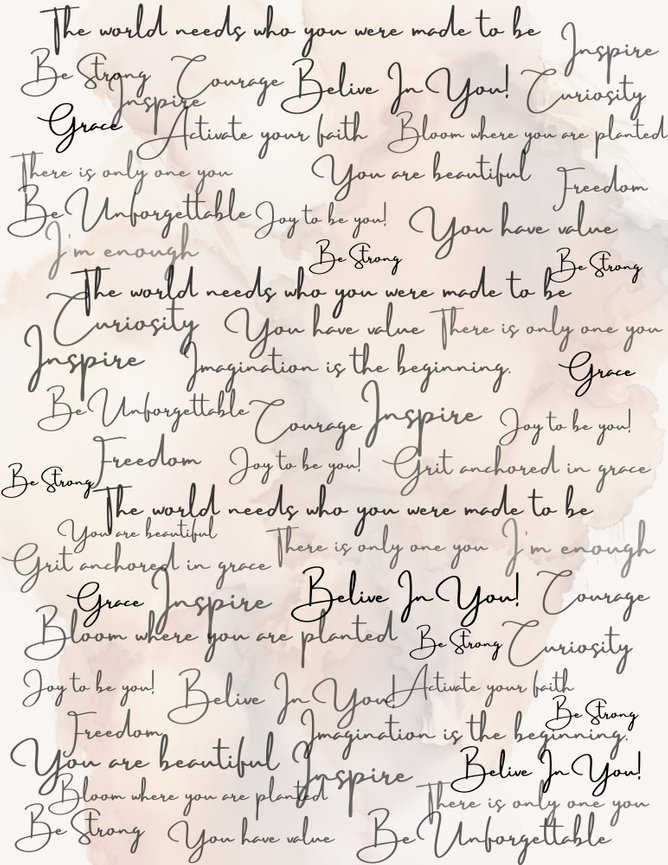 The world needs who you were made to be
Inspire
Be Strong Courage Belive In You! Curiosity
Inspire
Grace Activate your faith Bloom where you are planted
There is only one you You are beautiful Freedom
Be Unforgettable Joy to be you! You have value
I'm enough Be Strong Be Strong
The world needs who you were made to be
Curiosity You have value There is only one you
Inspire Imagination is the beginning. Grace
Be Unforgettable Courage Inspire Joy to be you!
Freedom Joy to be you! Grit anchored in grace
Be Strong
The world needs who you were made to be
You are beautiful There is only one you I'm enough
Grit anchored in grace
Grace Inspire Belive In You! Courage
Bloom where you are planted Be Strong Curiosity
Joy to be you! Belive In You! Activate your faith
Be Strong
Freedom Imagination is the beginning.
You are beautiful Inspire Belive In You!
Bloom where you are planted There is only one you
Be Strong You have value Be Unforgettable